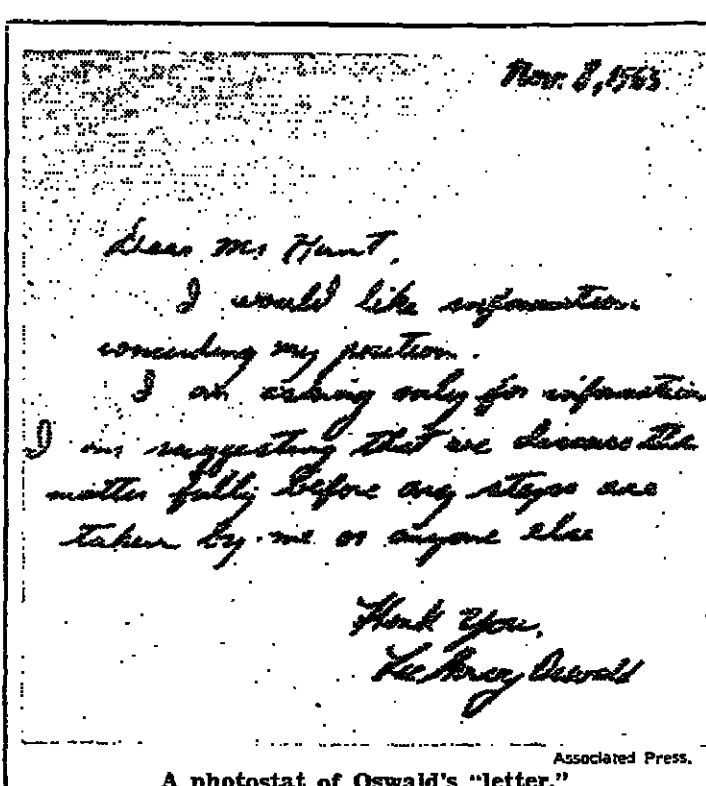 Nov. 8, 1963
Dear Mr Hunt,
I would like information
concerding my position.
I am asking only for information
I am suggesting that we discuss the
matter fully before any steps are
taken by me or anyone else
Thank You,
Lee Harvey Oswald
Associated Press.
A photostat of Oswald's "letter."